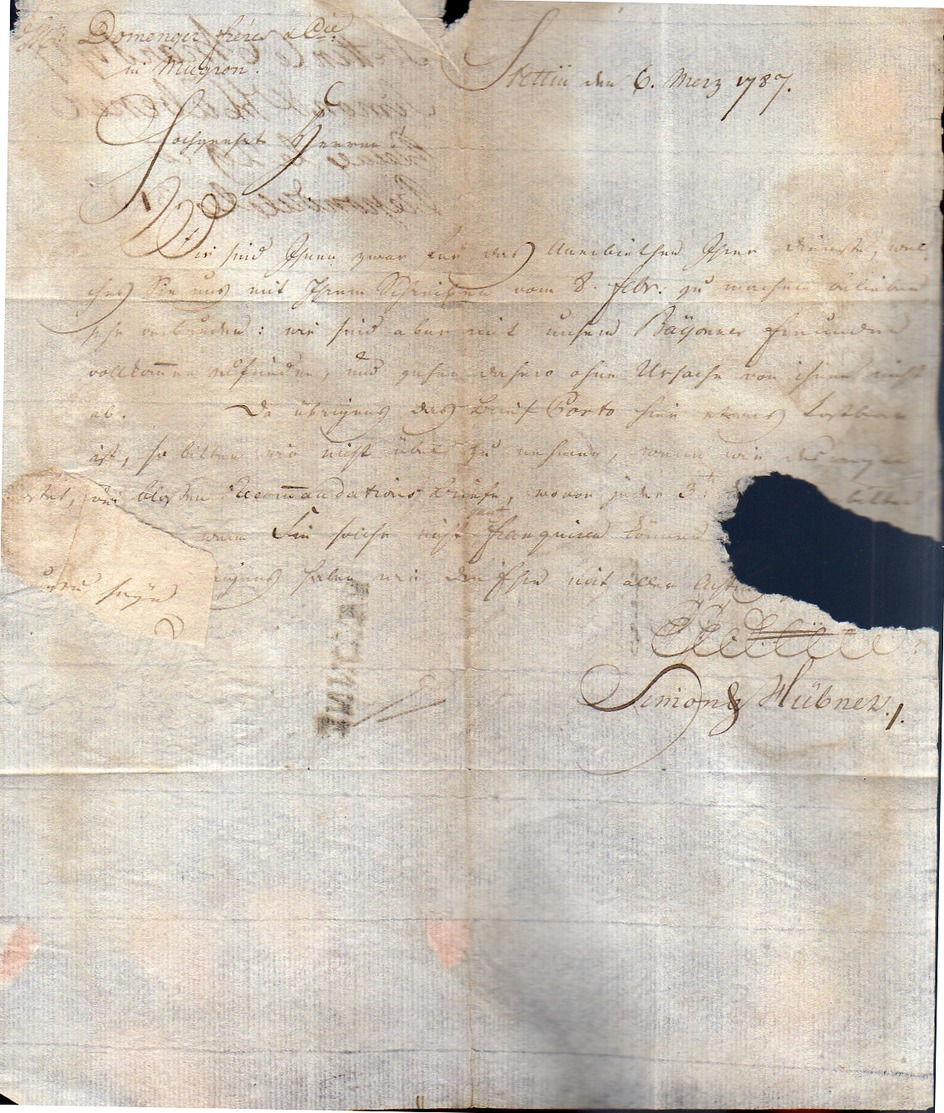 Domenger frères & Cie.
in Mugron.
Stettin den 6. Merz 1787.
Hochgeehrte Herren
Wir sind Ihnen zwar für das Anerbiethen Ihrer Dienste, wel
ches Sie uns mit Ihrem Schreiben vom 8. Febr. zu machen belieben
sehr verbunden: wir sind aber mit unsern Bayonner Freunden
vollkommen zufrieden, und gehen dahero ohne Ursache von ihnen nicht
ab. Da übrigens das Brief Porto hier etwas kostbar
ist, so bitten wir nicht übel zu nehmen, wenn wir
bloßen Recommandations Briefe, wovon jeder 3 bitten
wenn Sie solche nicht franquiren können
übrigens haben wir die Ehre mit aller Acht
zu seyn
Simon & Hübner